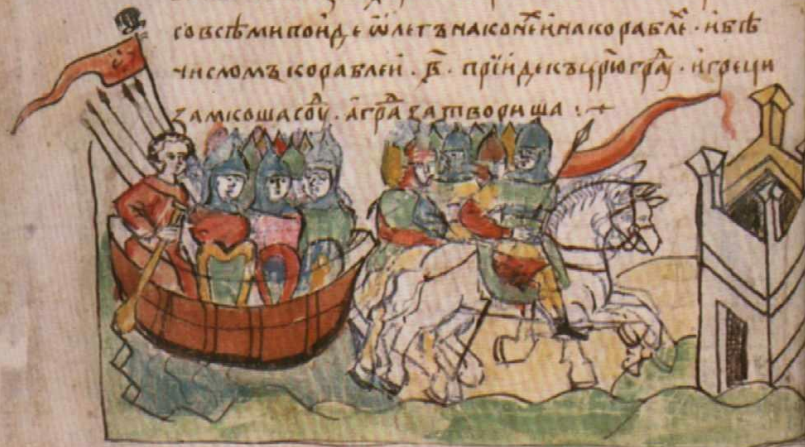 совсѣмипоиде ѡлегънаконехинакораблѣ · ибѣ
числомъкораблеи · в҃ · приидекъцрюграⷣ · игреци
замкошасоуⷣ · аграⷣзатвориша :